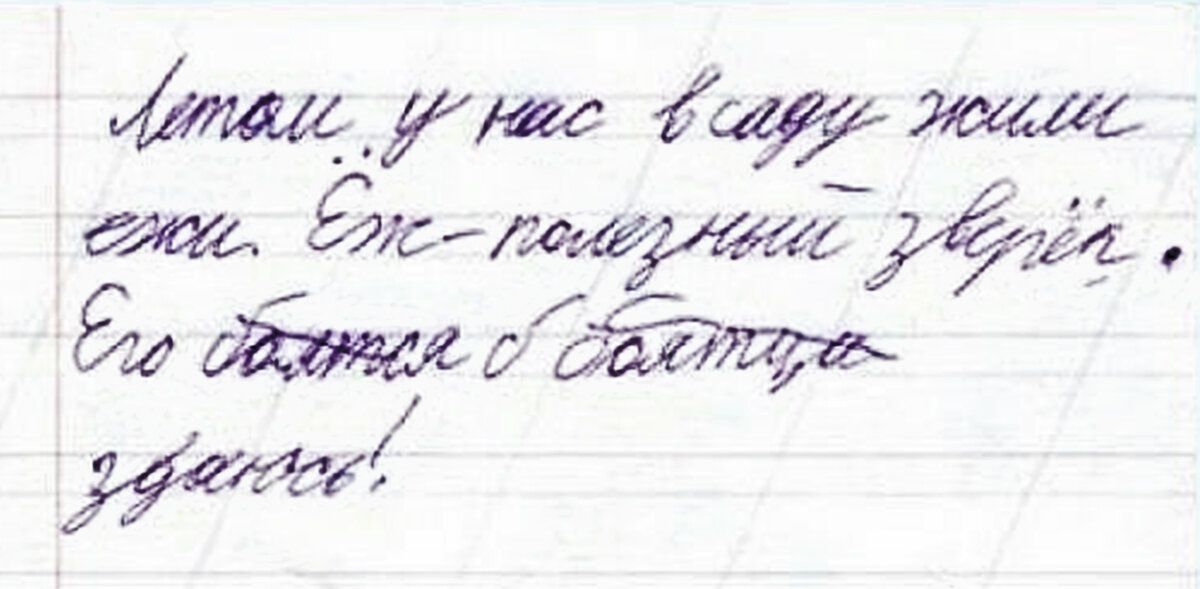 Летом у нас в саду жили
ежи. Ёж-полезный зверёк.
Его боятся б боятца
здаюсь!